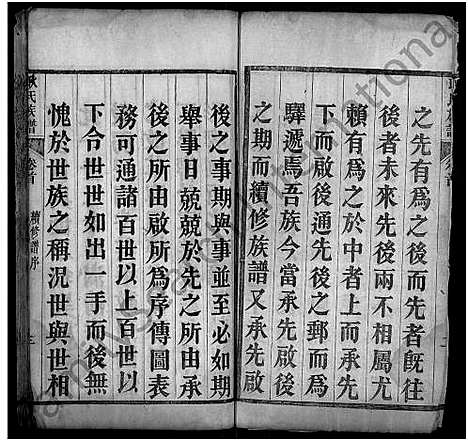 之先有為之後而先者既往
後者未來先後兩不相屬尤
賴有為之於中者上而承先
下而啟後通先後之郵而為
驛遞焉吾族今當承先啟後
之期而續修族譜又承先啟
後之事期與事並至必如期
舉事日兢兢於先之所由承
後之所由啟所為序傳圖表
務可通諸百世以上百世以
下合世世如出一手而後無
愧於世族之稱況世與世相
氏族譜
卷首
續修譜序
三